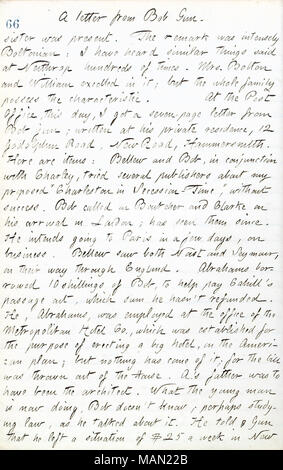 66
A letter from Bob Gun.
sister was present. The remark was intensely
Boltonian; I have heard similar things said
at Northrop hundreds of times. Mrs. Bolton
and William excelled in it; but the whole family
possess the characteristic. At the Post
Office, this day, I got a seven-page letter from
Bob Gun; written at his private residence, 12
Godolphin Road, New Road, Hammersmith.
Here are items: Bellew and Bob, in conjunction
with Charley, tried several publishers about my
proposed "Charleston in Secession-Time", without
success. Bob called on Boutcher and Clarke on
his arrival in London; has seen them since.
He intends going to Paris in a few days, on
business. Bellew saw both Nast and Seymour,
on their way through England. Abrahams bor-
rowed 10 shillings of Bob, to help pay Cahill's
passage act, which sum he hasn't refunded.
He, Abrahams, was employed at the office of the
Metropolitan Hotel Co, which was established for
the purpose of erecting a big hotel, on the Ameri-
can plan; but nothing has come of it, for the bill
was thrown out of the House. A's father was to
have been the architect. What the young man
is now doing, Bob doesn't know; perhaps study-
ing law, as he talked about it. He told Gun
that he left a situation of $25 a week in New
alamy
Image ID: MAN22B
www.alamy.com